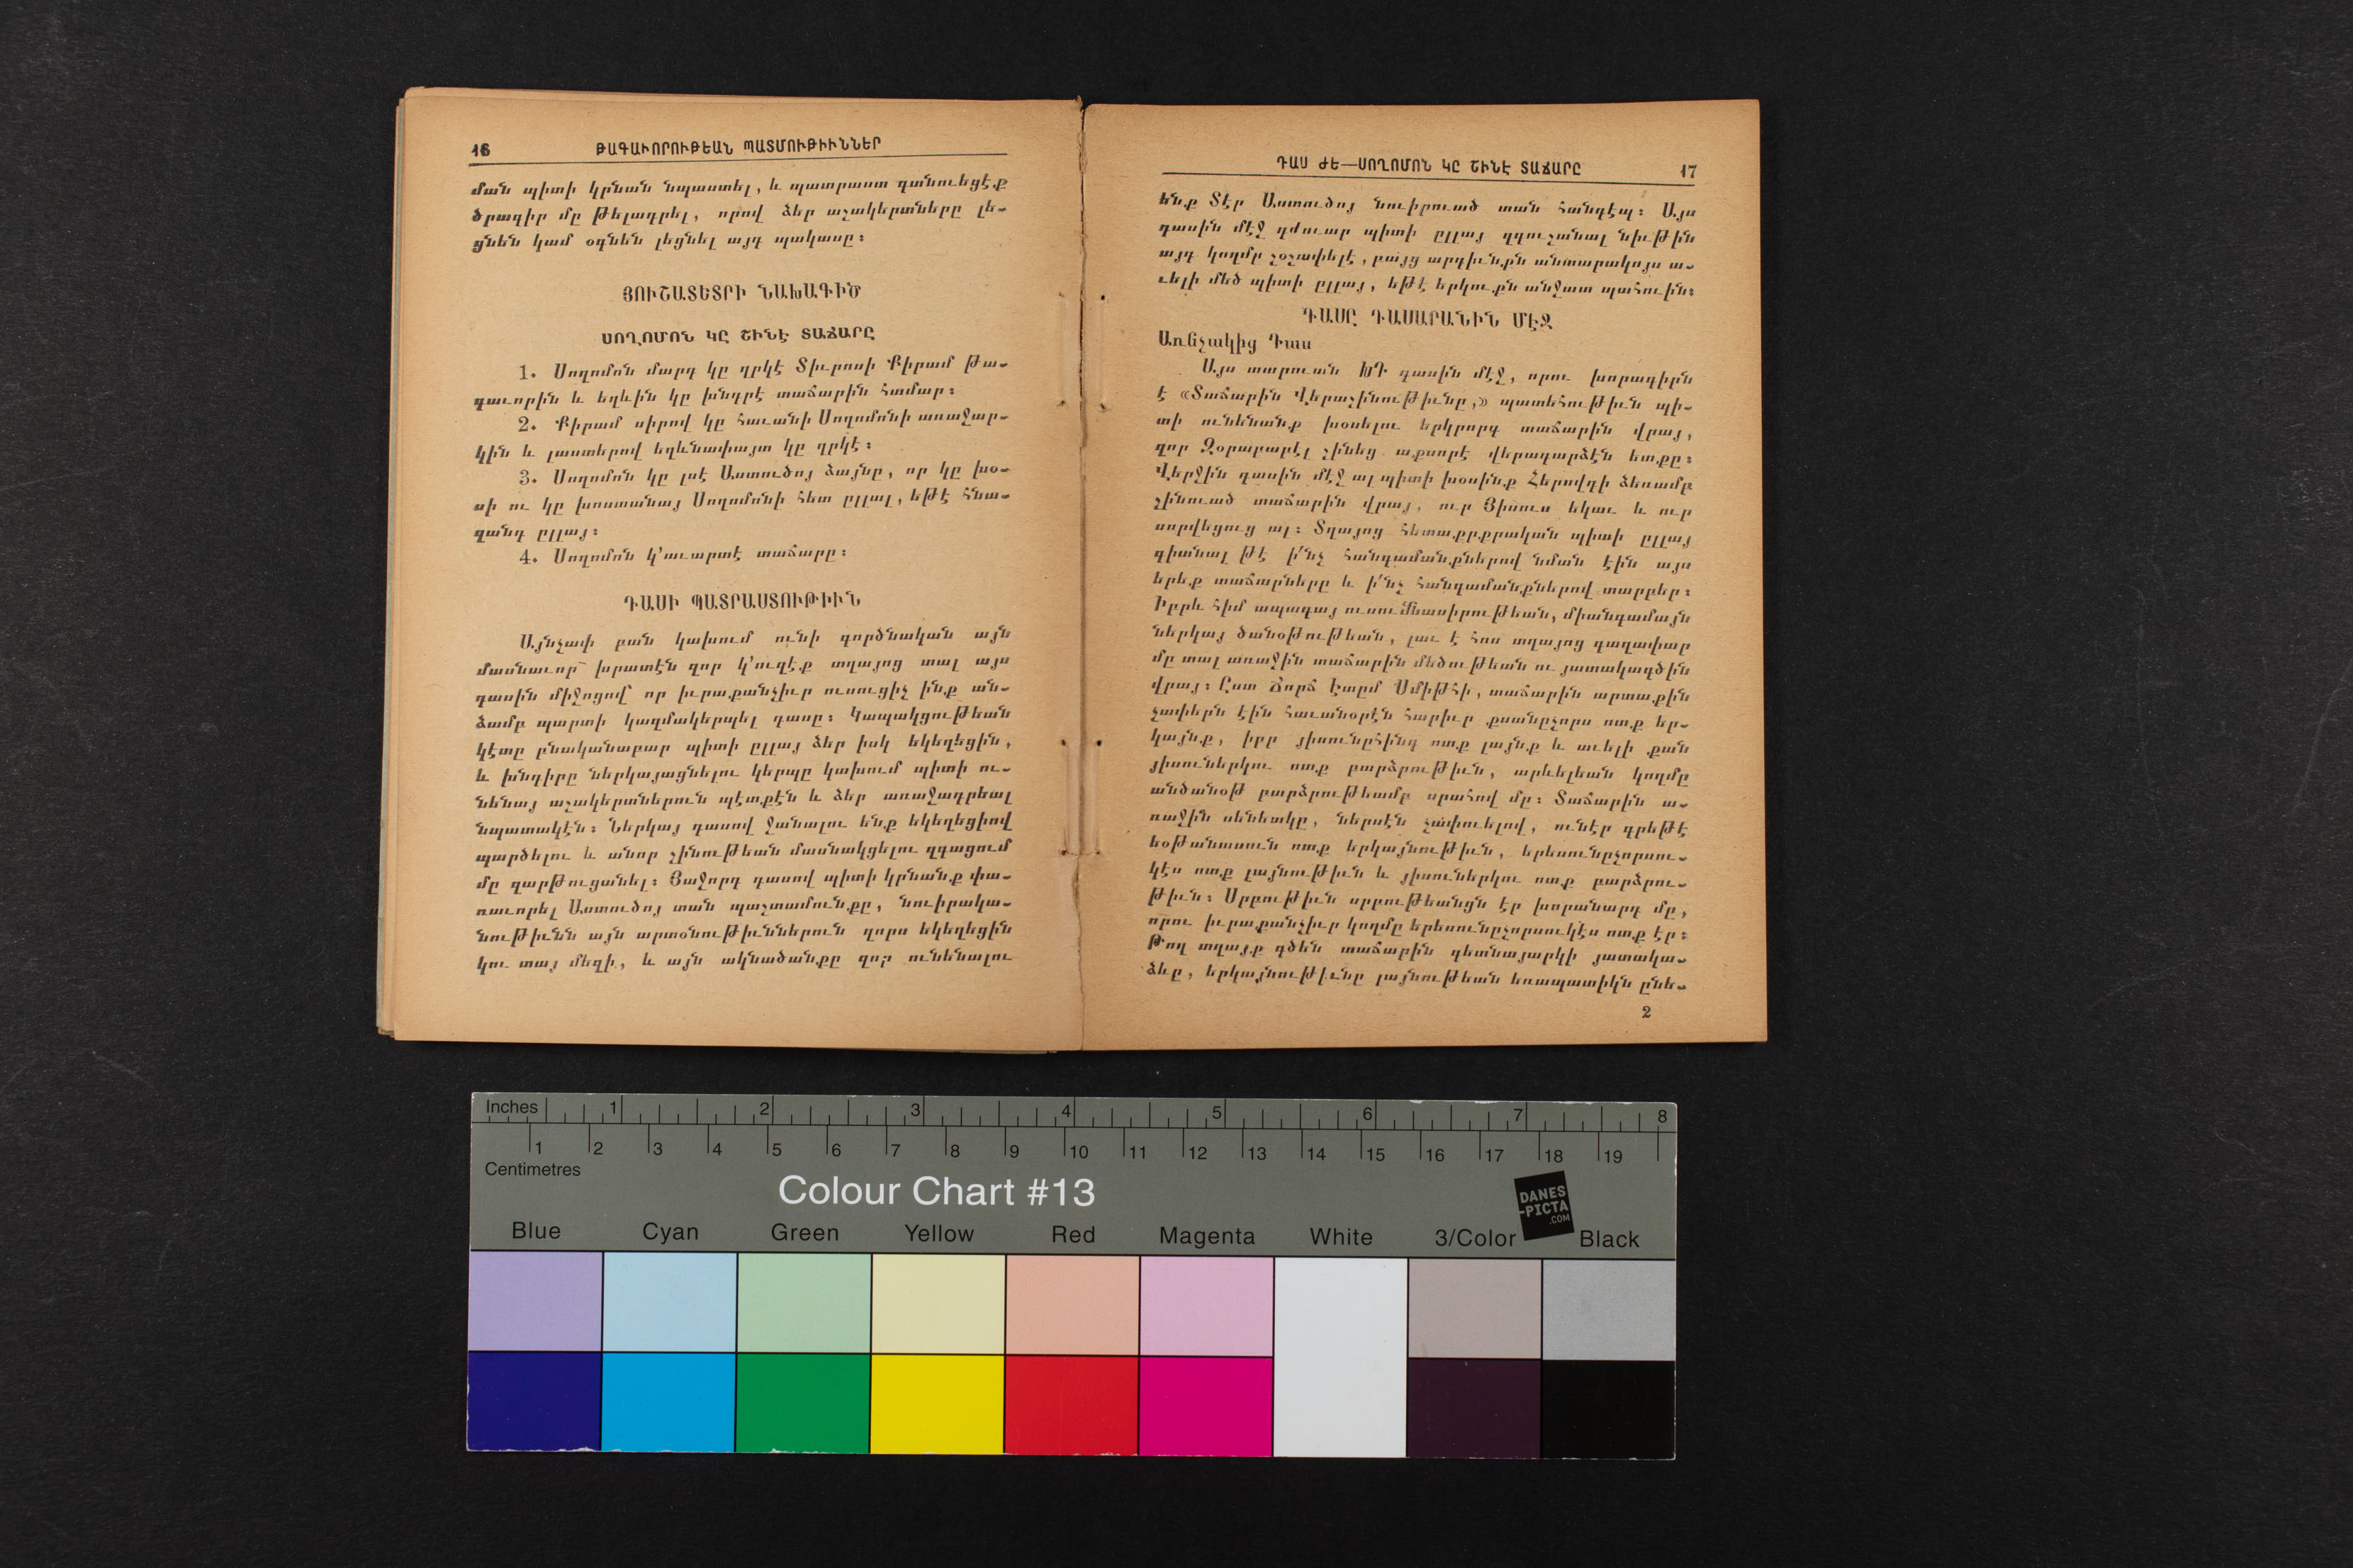 16 ԹԱԳԱՒՈՐՈՒԹԵԱՆ ՊԱՏՄՈՒԹԻՒՆՆԵՐ
ման պիտի կրնան նպաստել, և պատրաստ գտնուեցէք
ծրագիր մը թելադրել, որով ձեր աշակերտները լե-
ցնեն կամ օգնեն լեցնել այդ պակասը։
ՅՈՒՇԱՏԵՏՐԻ ՆԱԽԱԳԻԾ
ՍՈՂՈՄՈՆ ԿԸ ՇԻՆԷ ՏԱՃԱՐԸ
1. Սողոմոն մարդ կը ղրկէ Տիւրոսի Քիրամ թա-
գաւորին և եղևին կը խնդրէ տաճարին համար։
2. Քիրամ սիրով կը հաւանի Սողոմոնի առաջար-
կին և լաստերով եղևնափայտ կը ղրկէ։
3. Սողոմոն կը լսէ Աստուծոյ ձայնը, որ կը խօ-
սի ու կը խոստանայ Սողոմոնի հետ ըլլալ, եթէ հնա-
զանդ ըլլայ։
4. Սողոմոն կ՚աւարտէ տաճարը։
ԴԱՍԻ ՊԱՏՐԱՍՏՈՒԹԻՒՆ
Այնչափ բան կախում ունի գործնական այն
մասնաւոր խրատէն զոր կ՚ուզէք տղայոց տալ այս
դասին միջոցով՝ որ իւրաքանչիւր ուսուցիչ ինք ան-
ձամբ պարտի կազմակերպել դասը։ Կապակցութեան
կէտը բնականաբար պիտի ըլլայ ձեր իսկ եկեղեցին,
և խնդիրը ներկայացնելու կերպը կախում պիտի ու-
նենայ աշակերտներուն պէտքէն և ձեր առաջադրեալ
նպատակէն։ Ներկայ դասով ջանալու ենք եկեղեցիով
պարծելու և անոր շինութեան մասնակցելու զգացում
մը զարթուցանել։ Յաջորդ դասով պիտի կրնանք փա-
ռաւորել Աստուծոյ տան պաշտամունքը, նուիրակա-
նութիւնն այն արտօնութիւններուն զորս եկեղեցին
կու տայ մեզի, և այն ակնածանքը զոր ունենալու
ԴԱՍ ԺԵ—ՍՈՂՈՄՈՆ ԿԸ ՇԻՆԷ ՏԱՃԱՐԸ 17
ենք Տէր Աստուծոյ նուիրուած տան հանդէպ։ Այս
դասին մէջ դժուար պիտի ըլլայ զգուշանալ նիւթին
այդ կողմը շօշափելէ, բայց արդիւնքն անտարակոյս ա-
ւելի մեծ պիտի ըլլայ, եթէ երկուքն անջատ պահուին։
ԴԱՍԸ ԴԱՍԱՐԱՆԻՆ ՄԷՋ
Առնչակից Դաս
Այս տարուան ԽԴ դասին մէջ, որու խորագիրն
է «Տաճարին Վերաշինութիւնը,» պատեհութիւն պի-
տի ունենանք խօսելու երկրորդ տաճարին վրայ,
զոր Զօրաբաբէլ շինեց աքսորէ վերադարձէն ետքը։
Վերջին դասին մէջ ալ պիտի խօսինք Հերովդի ձեռամբ
շինուած տաճարին վրայ, ուր Յիսուս եկաւ և ուր
սորվեցուց ալ։ Տղայոց հետաքրքրական պիտի ըլլայ
գիտնալ թէ ի՛նչ հանգամանքներով նման էին այս
երեք տաճարները և ի՛նչ հանգամանքներով տարբեր։
Իբրև հիմ ապագայ ուսումնասիրութեան, միանգամայն
ներկայ ծանօթութեան, լաւ է հոս տղայոց գաղափար
մը տալ առաջին տաճարին մեծութեան ու յատակագծին
վրայ։ Ըստ Ճորճ Էտըմ Սմիթհի, տաճարին արտաքին
չափերն էին հաւանօրէն հարիւր քսանըչորս ոտք եր-
կայնք, իբր յիսունըհինգ ոտք լայնք և աւելի քան
յիսուներկու ոտք բարձրութիւն, արևելեան կողմը
անծանօթ բարձրութեամբ սրահով մը։ Տաճարին ա-
ռաջին սենեակը, ներսէն չափուելով, ունէր գրեթէ
եօթանասուն ոտք երկայնութիւն, երեսունըչորսու-
կէս ոտք լայնութիւն և յիսուներկու ոտք բարձրու-
թիւն։ Սրբութիւն սրբութեանցն էր խորանարդ մը,
որու իւրաքանչիւր կողմը երեսունըչորսուկէս ոտք էր։
Թող տղայք գծեն տաճարին գետնայարկի յատակա-
ձևը, երկայնութիւնը լայնութեան եռապատիկն ընե-
2
Inches 1 2 3 4 5 6 7 8
1 2 3 4 5 6 7 8 9 10 11 12 13 14 15 16 17 18 19
Centimetres
Colour Chart #13
DANES
-PICTA
.COM
Blue Cyan Green Yellow Red Magenta White 3/Color Black